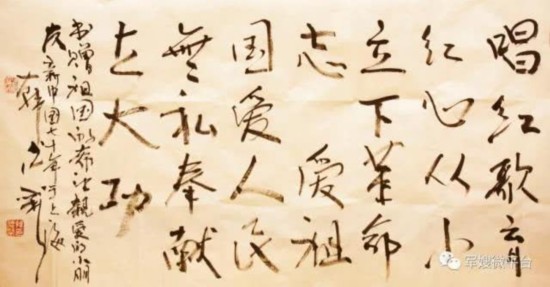 唱红歌育
红心从小
立下革命
志 爱祖
国爱人民
無私奉献
立大功
书赠祖国的希望親爱的小朋
友 新中国七十年于上海
军嫂微平台